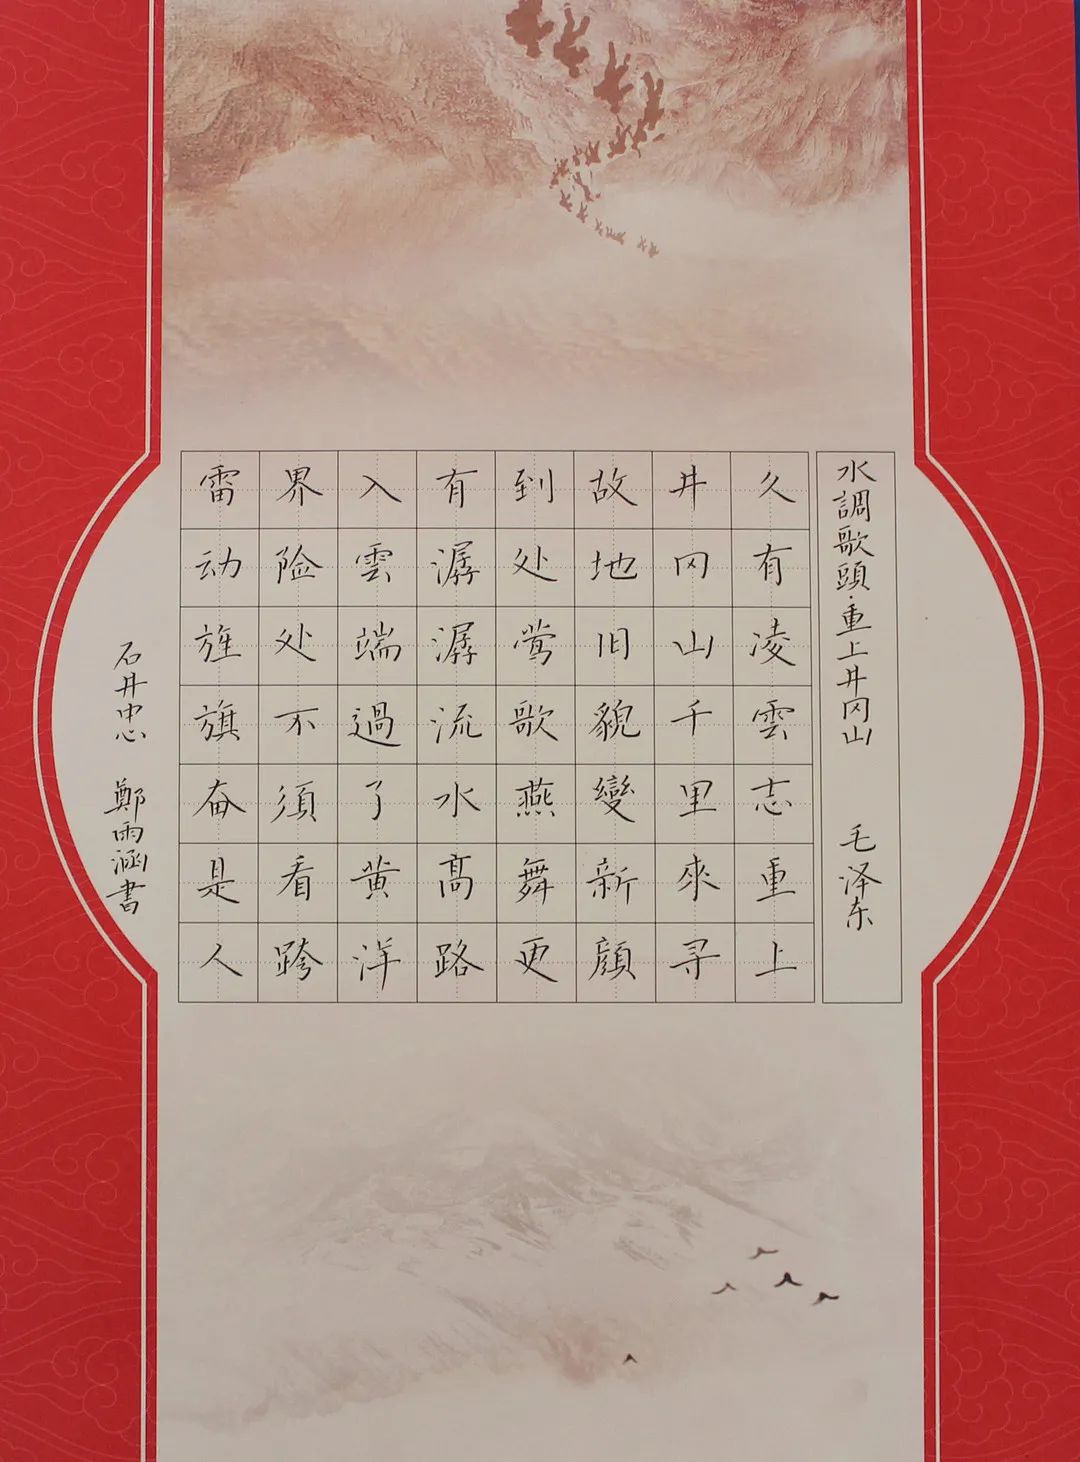 水調歌頭·重上井冈山 毛泽东
久有凌雲志重上
井冈山千里來寻
故地旧貌變新顔
到处莺歌燕舞更
有潺潺流水髙路
入雲端過了黄洋
界险处不須看跨
雷动旌旗奋是人
石井忠 鄭雨涵書